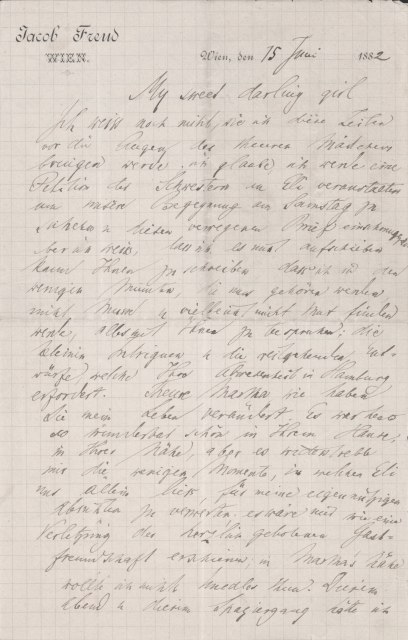 Jacob Freud
WIEN.
Wien, den 15 Juni 1882
My sweet darling girl
Ich weiss noch nicht, wie ich diese Zeilen
vor die Augen des theuren Mädchens
bringen werde, ich glaube, ich werde eine
Petition der Schwestern an Eli veranstalten
um unsere Begegnung am Samstag zu
u diesen verwegenen Brief
Aber ich weiss, dass ich es nicht aufschieben
kann Ihnen zu schreiben dass ich in den
wenigen Minuten, die uns gehören werden
nicht Musse u vielleicht nicht Mut finden
werde, alles mit Ihnen zu besprechen: die
kleinen Intriguen u die weitgehenden Ent-
würfe, welche Ihre Abwesenheit in Hamburg
erfordert. Theure Martha wie haben
Sie mein Leben verändert. Es war heute
so wunderbar schön in Ihrem Hause,
in Ihrer Nähe, aber es
mir die wenigen Momente, in welchen Eli
uns allein liess, für meine eigennützigen
Absichten zu verwerten. es wäre mir wie eine
Verletzung der herzlich gebotenen Gast-
freundschaft erschienen, in Martha's Nähe
wollte ich nicht thun. Diesem
Abend u diesem Spaziergang hätte ich